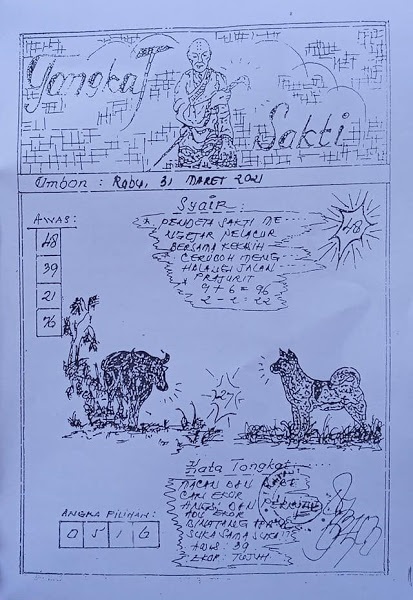 Tongkat Sakti
Ombon : Rabu, 31 MARET 2021
Syair :
AWAS :
48
39
21
76
PENDETA SAKTI ME
NGEJAR PELACUR
BERSAMA KEKASIH
CEROBOH MENG
HALANGI JALAN
PRAJURIT
9 + 6 = 96
2 - 2 : 22
48
27
Kata Tongkat :
MACAN DAN
CARI EKOR
DAN
ADU EKOR
BINATANG
SUKA SAMA SUKA
AWAS : 39
EKOR : TUJUH
ANGKA PILIHAN :
0 5 1 6